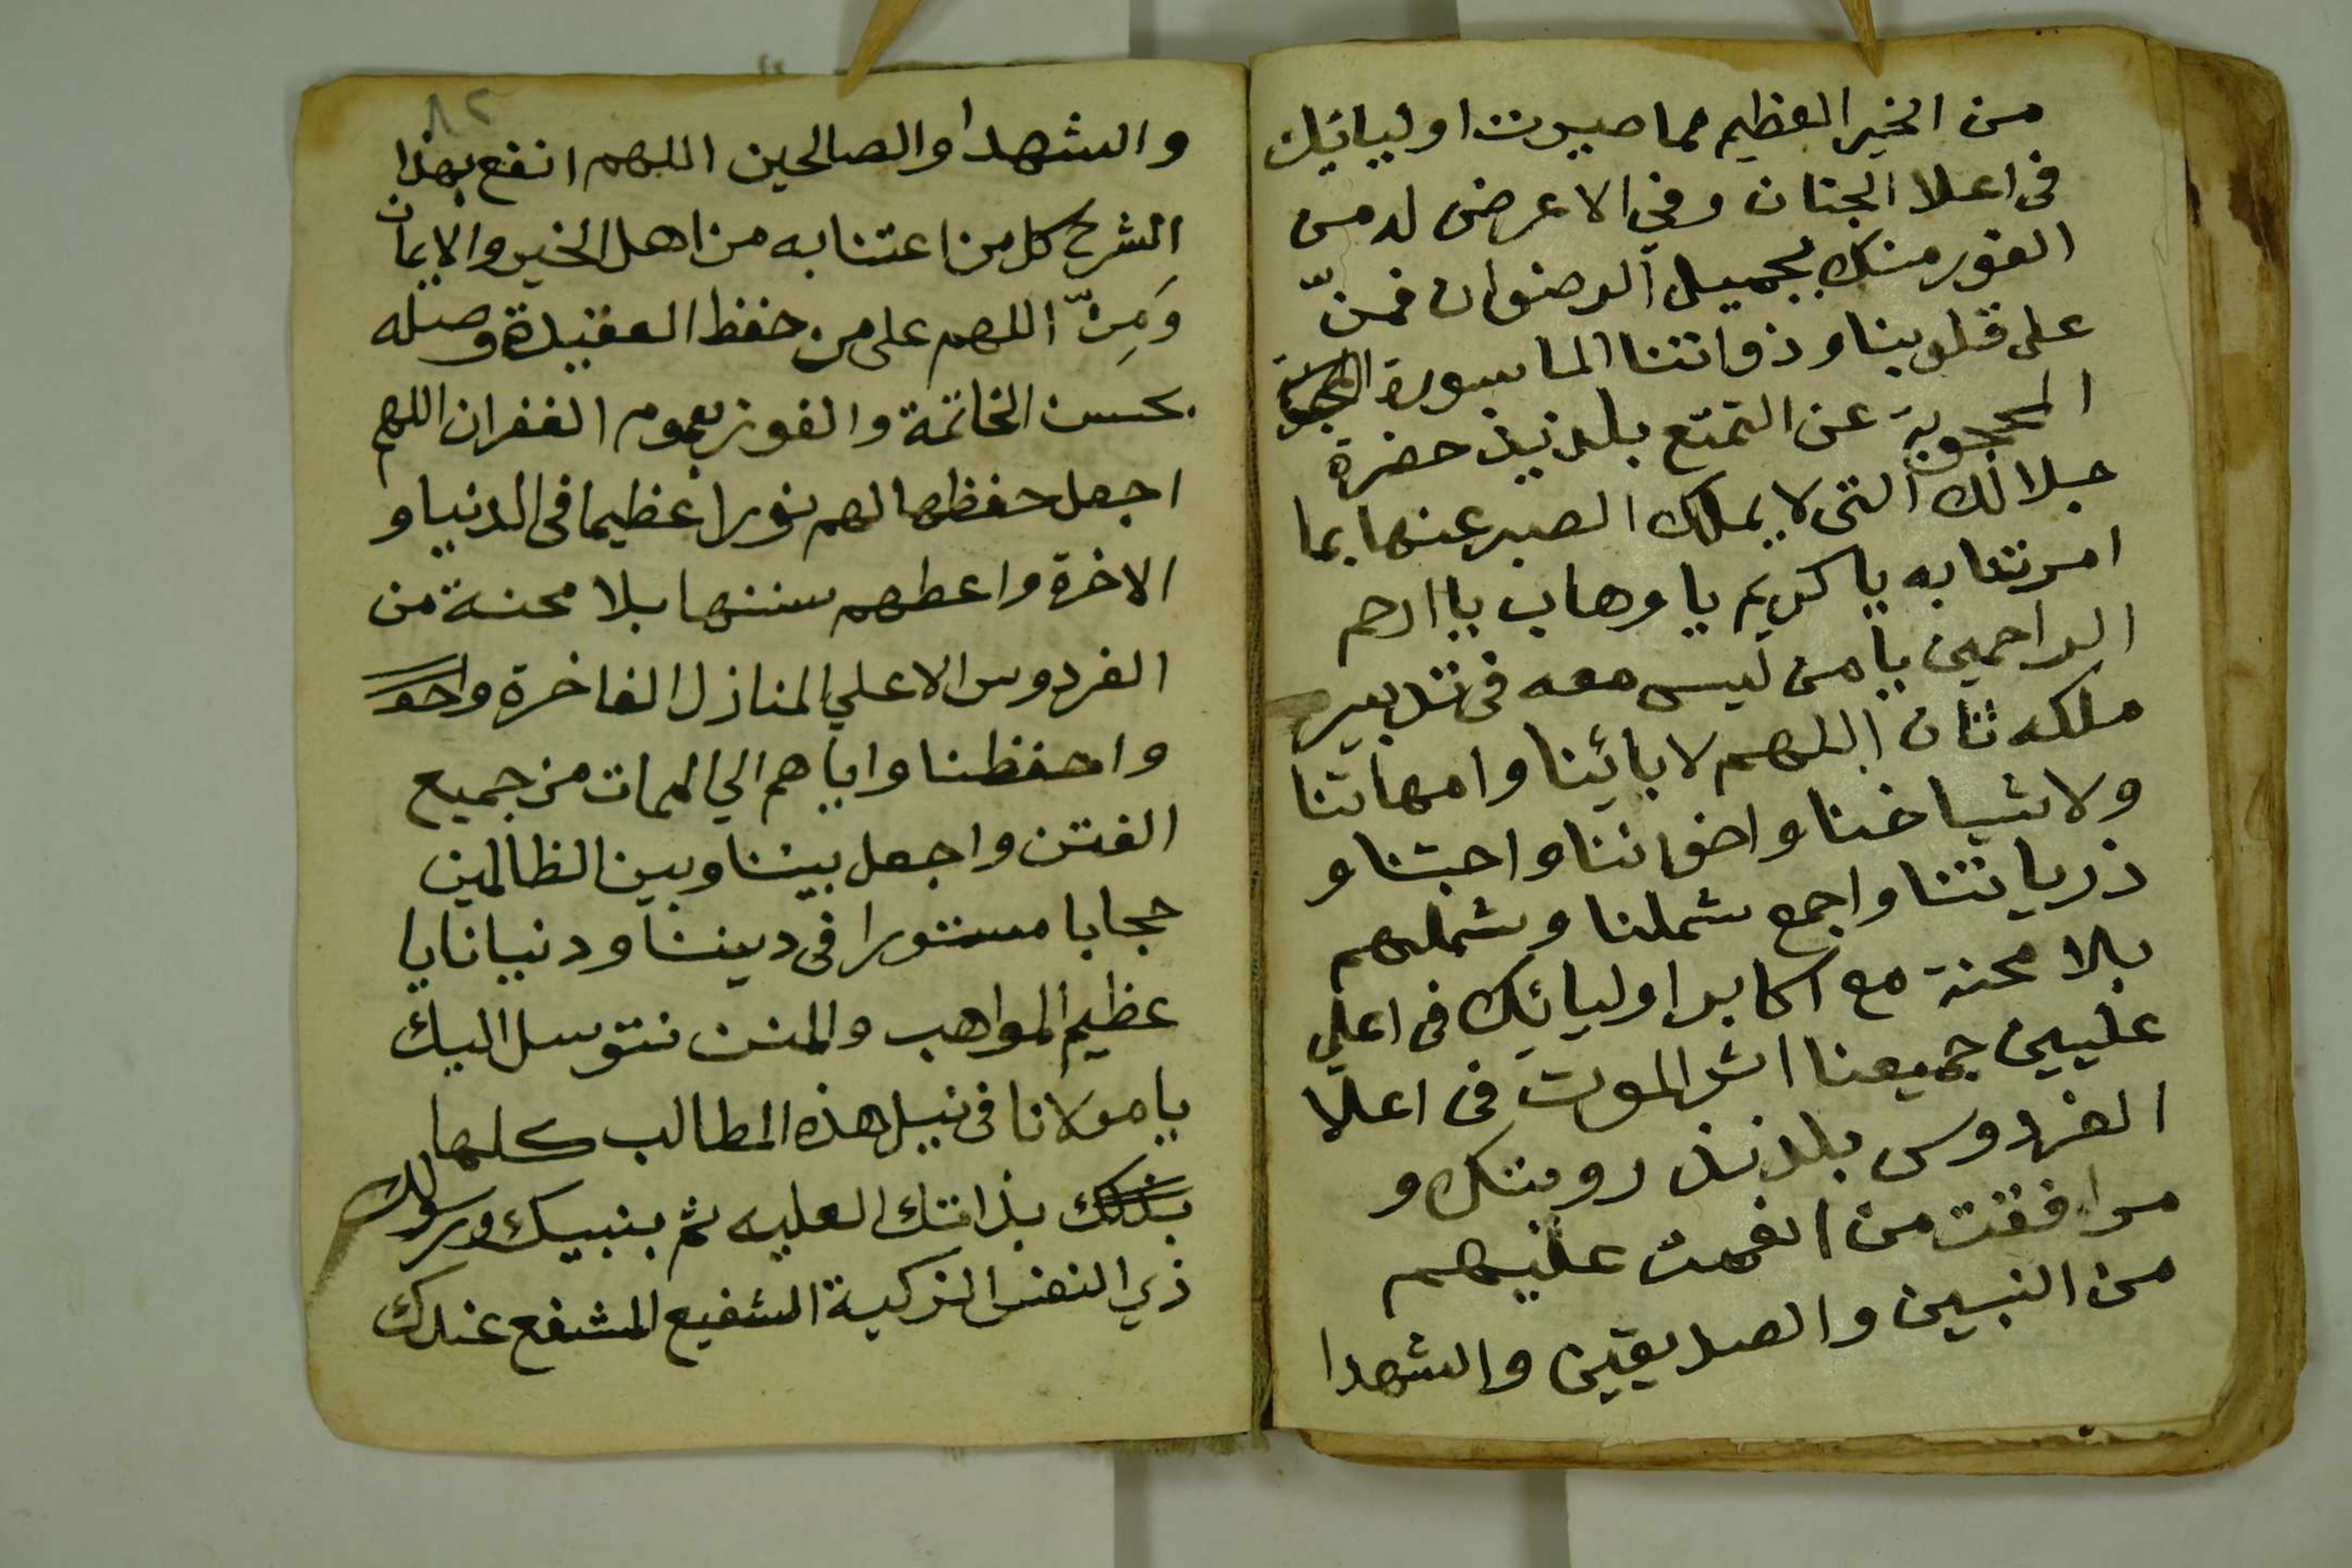 من الخير العظيم مما صيرت اوليائك
فى اعلا الجنان وفي الاعرض لدمن
الفوز منك بجميل الرضوان فمنّ
على قلوبنا وذواتنا المأسورة
المحجوبة عن التمتع بلذيذ حضرة
جلالك التى لا يملك الصبر عنها بما
امرتنا به يا كريم يا وهاب يا ارحم
الراحمين يا من ليس معه فى تدبير
ملكه ثان اللهم لابائينا وامهاتنا
ولاشياخنا واخواننا واحبتنا و
ذرياتنا واجمع شملنا وشملهم
بلا محنة مع اكابر اوليائك فى اعلي
عليين جميعنا اثر الموت فى اعلا
الفردوس بلذيذ رويتك و
مرافقت من انعمت عليهم
من النبيين والصديقين والشهدا
٨٢
والشهدا والصالحين اللهم انفع بهذا
الشرح كل من اعتنا به من اهل الخير والايمان
وَمِنّ اللهم على من حفظ العقيدة وصله
بحسن الخاتمة والفوز بعموم الغفران اللهم
اجعل حفظها لهم نورا عظيما فى الدنيا و
الاخرة واعطهم سننها بلا محنة من
الفردوس الاعلي المنازل الفاخرة
واحفظنا واياهم الي الممات من جميع
الفتن واجعل بيننا وبين الظالمين
حجابا مستورا فى ديننا ودنيانا يا
عظيم المواهب والمنن نتوسل اليك
يا مولانا فى نيل هذه المطالب كلها
بذلك بذاتك العليه ثم بنبيك ورسولك
ذي النفس الزكية الشفيع المشفع عندك